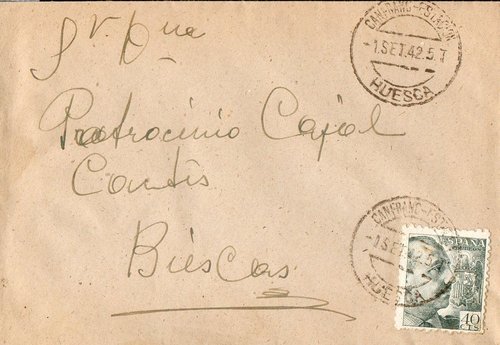 CANFRANC-ESTACION
-1.SET.42.5.T
HUESCA
Sr. Dna
Patrocinio Cajal
Contis
Biescas
CANFRANC-ESTACION
-1SET
HUESCA
ESPAÑA
40
CTS